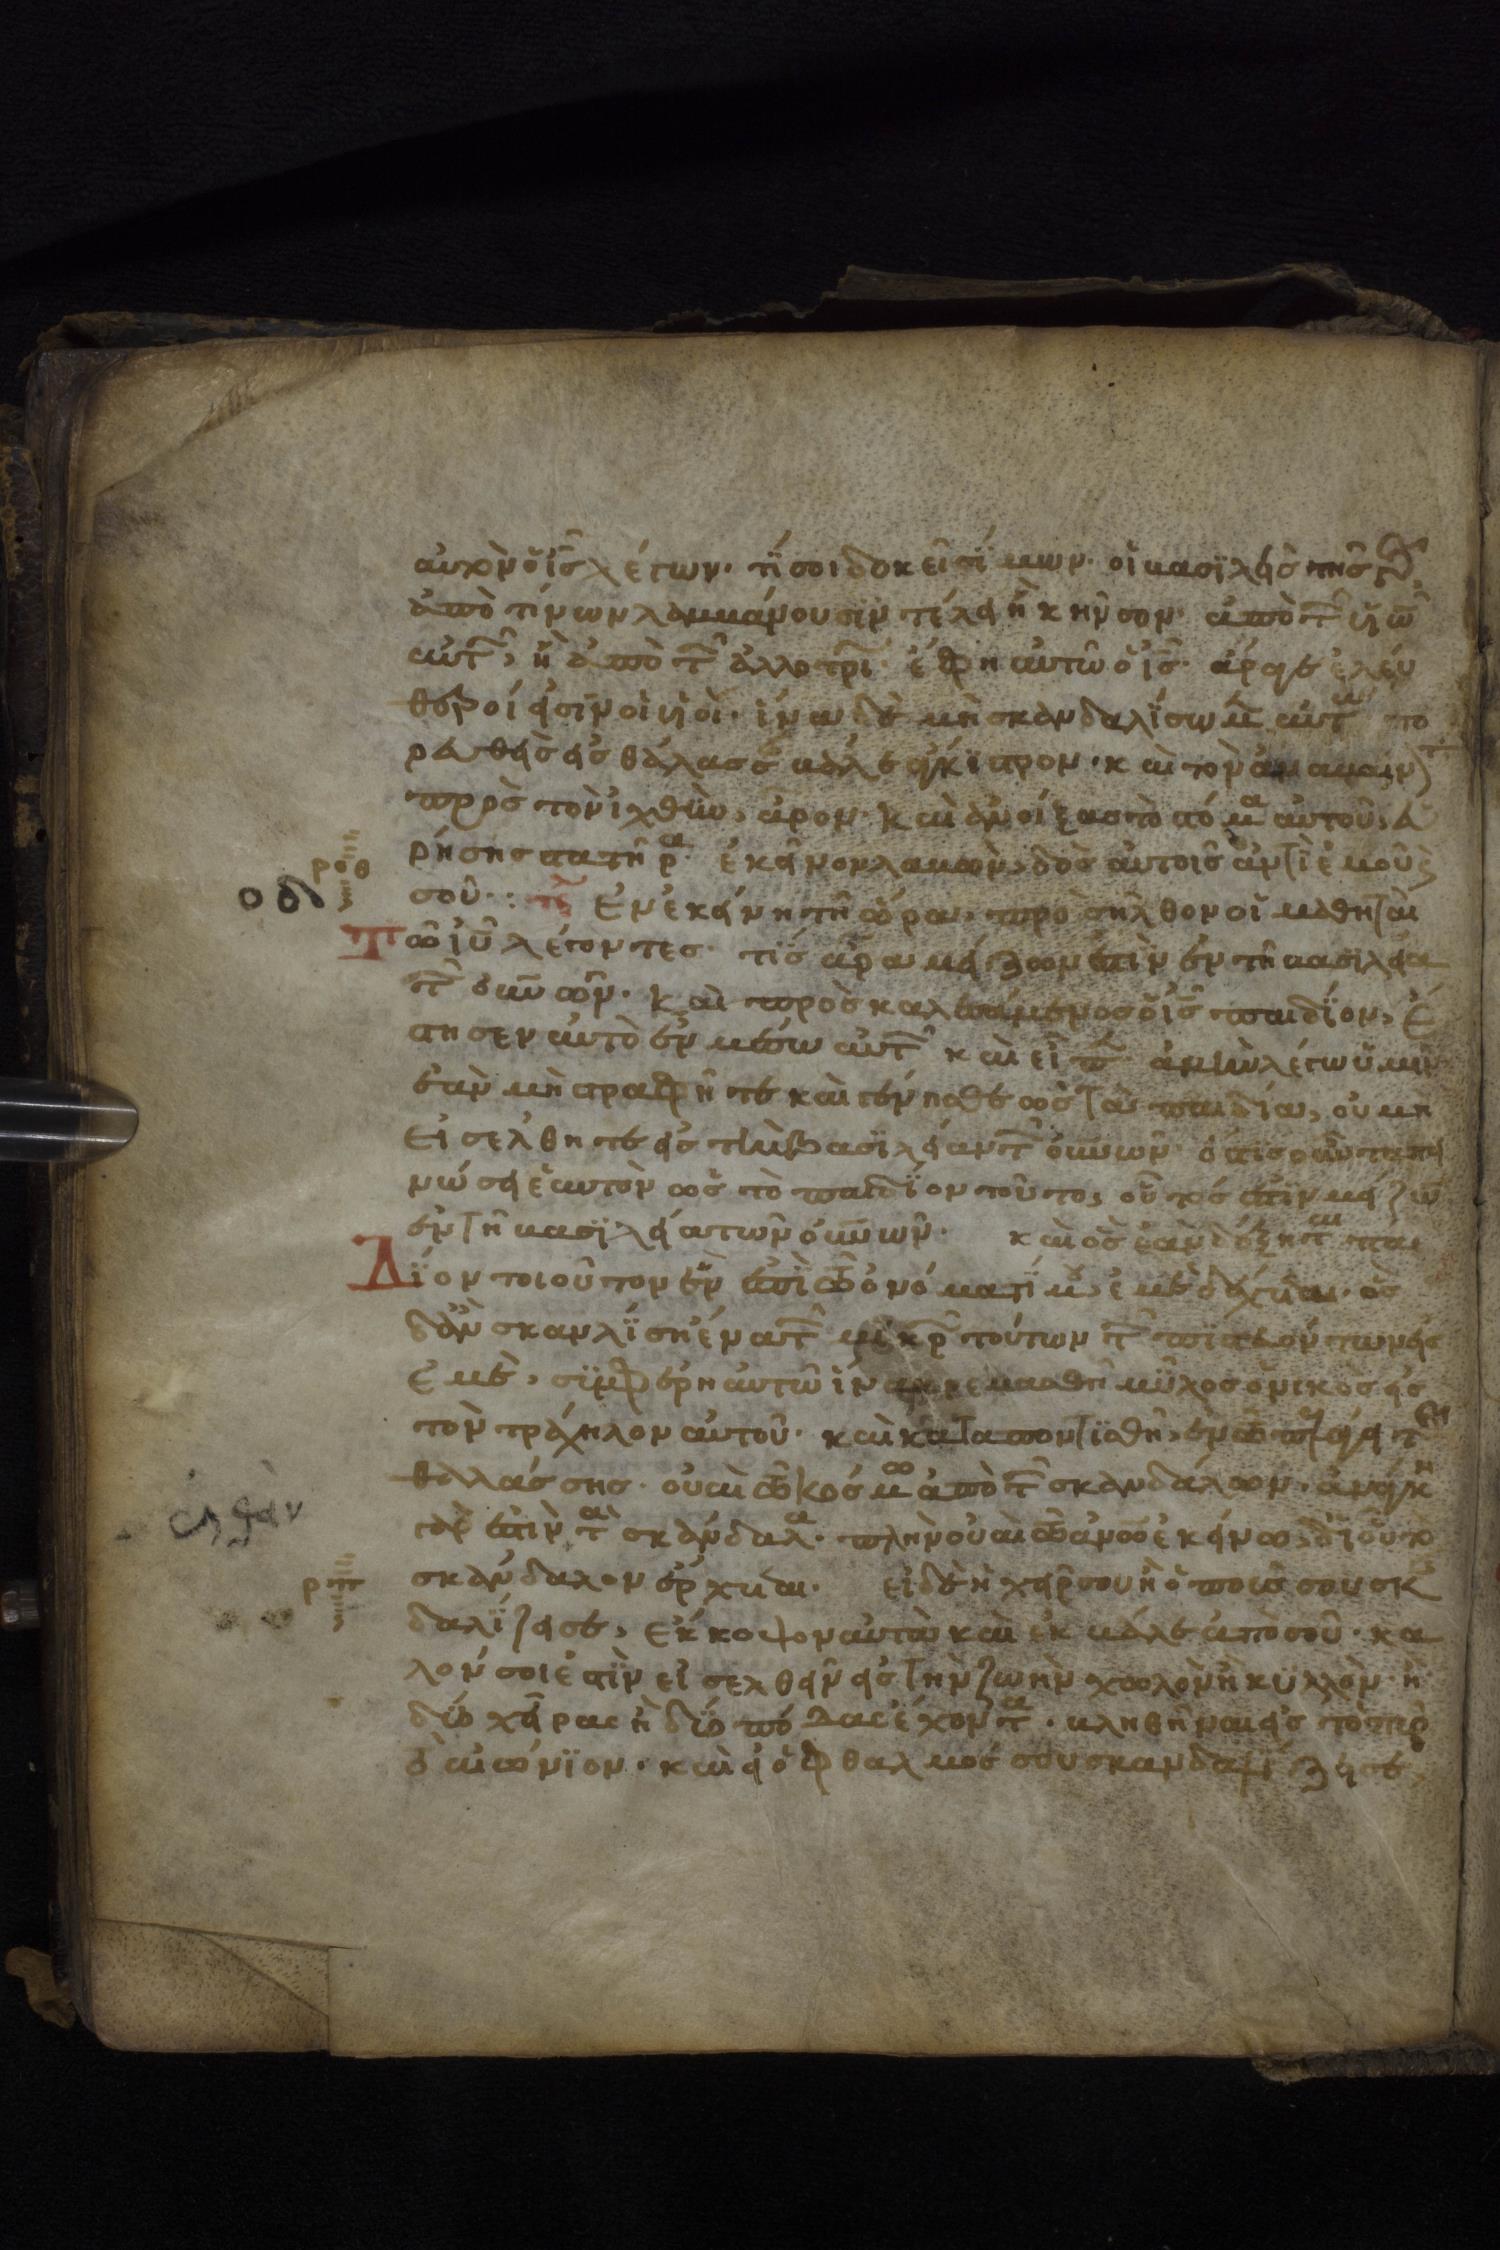 αὐτὸν ὁ ις λέγων· τί σοι δοκεῖ σίμων· οἱ βασιλεῖς τῆς γῆς
ἀπὸ τίνων λαμβάνουσιν τέλη ἢ κῆνσον· ἀπὸ τῶν υἱῶν
αὐτῶν, ἢ ἀπὸ τῶν ἀλλοτρί· ἔφη αὐτῶ ὁ ις· ἄραγε ἐλεύ
θεροί εἰσιν οἱ υἱοὶ· ἵνα δὲ μὴ σκανδαλίσωμ αὐτ πο
ρευθεὶς εἰς θάλασσ βάλε ἄγκιστρον· καὶ τὸν ἀναβαιν
πρῶτον ἰχθὺν, ἆρον· καὶ ἀνοίξας τὸ στόμα αὐτοῦ, εὑ
ρήσης στατῆρα· ἐκεῖνον λαβὼν, δὸς αὐτοῖς ἀντὶ ἐμοῦ κ
σοῦ·: Ἐν ἐκείνη τῆ ὥρα, προσῆλθον οἱ μαθηταὶ
οδ
ροθ
Τῶ ιυ λέγοντες· τίς ἄρα μείζων ἐστὶν ἐν τῆ βασιλεία
τῶν οὐνῶν· καὶ προσκαλεσάμενος ὁ ις παιδίον, ἔ
στησεν αὐτὸ ἐν μέσω αὐτῶν καὶ εἶπ ἀμὴν λέγω ὑμῖν
ἐὰν μὴ στραφῆτε καὶ γένησθε ὡς τὰ παιδία, οὐ μὴ
εἰσέλθητε εἰς τὴν βασιλείαν τῶν οὐνῶν· ὅστις οὖν ταπει
νώσει ἑαυτὸν ὡς τὸ παιδίον τοῦτο, οὗτός ἐστιν μείζων
ἐν τῆ βασιλεία τῶν οὐνῶν· καὶ ὃς ἐὰν δέξηται παι
Δίον τοιοῦτον ἓν ἐπὶ τῶ ὀνόματί μου, ἐμὲ δέχεται· ὃς
δ' ἂν σκανλίση ἕνα τῶν μικρ τούτων τῶν πιστευόντων εἰς
ἐμὲ, συμφέρη αὐτῶ ἵνα κρεμασθῆ μῦλος ὀνικὸς εἰς
τὸν τράχηλον αὐτοῦ· καὶ καταποντισθῆ ἐν τῶ πελάγει τῆς
θαλάσσης· οὐαὶ τῶ κόσμω ἀπὸ τῶν σκανδάλων· ἀνάγκη
γάρ ἐστιν τὰ σκάνδαλα· πλὴν οὐαὶ τῶ ἀνω ἐκείνω, δι' οὗ τὸ
σκάνδαλον ἔρχεται· εἰ δὲ ἡ χείρ σου ἢ ὁ ποῦς σου σκ
ρπ
δαλίζει σε, ἔκκοψον αὐτὰ καὶ ἐκ βάλε ἀπὸ σοῦ· κα
λόν σοι ἐστὶν εἰσελθεῖν εἰς τὴν ζωὴν χωλὸν ἢ κυλλὸν· ἢ
δύο χεῖρας ἢ δύο πόδας ἔχοντα· βληθῆναι εἰς τὸ πῦρ
τὸ αἰώνιον· καὶ εἰ ὁ ὀφθαλμός σου σκανδαλίζει σε,